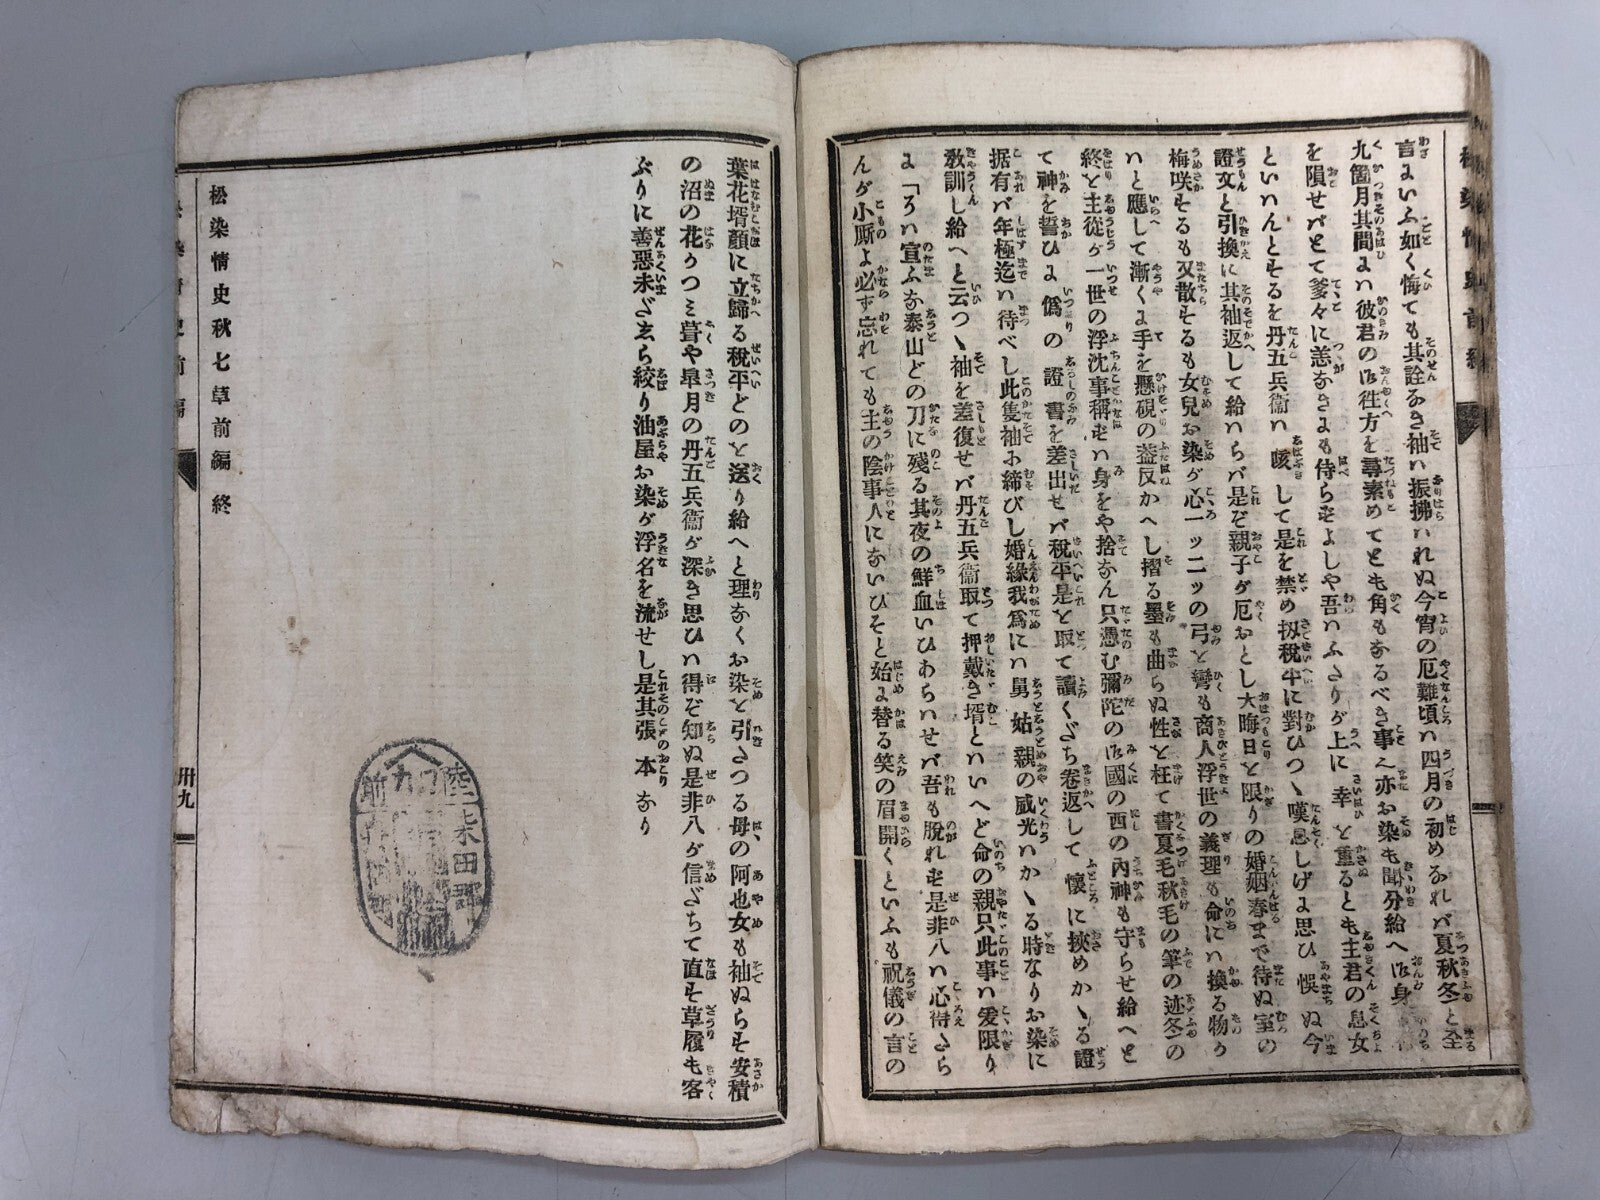 言にいふ如く悔ても其詮なき袖ハ振拂ハれぬ今宵の厄難頃ハ四月の初めなれバ夏秋冬と全
九箇月其間にハ彼君の御徃方を尋素めてとも角もなるべき事ぞ亦お染も聞分給へ御身
を隕せバとて爹々に恙なきにも侍らずよしや吾ハふさりが上に幸と重るとも主君の息女
といハんとするを丹五兵衞ハ咳して是を禁め扨税平に對ひつゝ嘆息しげに思ひ悞ぬ今
證文と引換に其袖返して給ハらバ是ぞ親子が厄おとし大晦日と限りの婚姻春まで待ぬ室の
梅咲するも又散するも女兒お染が心一ッ二ッの弓と彎も商人浮世の義理も命にハ換る物か
ハと應して漸くに手を懸硯の葢反かへし摺る墨も曲らぬ性と枉て書夏毛秋毛の筆の迹冬の
終と主從が一世の浮沈事稱ずハ身をや捨なん只憑む彌陀の御國の西の内神も守らせ給へと
て神を誓ひに僞の證書を差出せバ税平是と取て讀くだち卷返して懷に挾めかゝる證
据有バ年極迄ハ待べし此隻袖ふ締びし婚緣我爲にハ舅姑親の威光ハかゝる時なりお染に
敎訓し給へと云つゝ袖を差復せバ丹五兵衞取て押戴き壻とハいへど命の親只此事ハ爰限り
に「ろハ宣ふな泰山どの刀に殘る其夜の鮮血いひあらハせバ吾も脫れず是非八ハ心得さら
んが小厮よ必ず忘れても主の陰事人にないひそと始に替る笑の眉開くといふも祝儀の言の
葉花壻顏に立歸る税平どのと送り給へと理なくお染と引さつる母の阿也女も袖ぬらす安積
の沼の花かつミ葺や皐月の丹五兵衞が深き思ひハ得ぞ知ぬ是非八が信だちて直す草履も客
ぶりに善惡未ざゑら絞り油屋お染が浮名を流せし是其張本なり
松染情史秋七草前編終
卅九